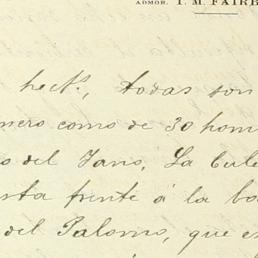 ADMOR. T. M. FAIRB
hect.s, todas son
nero como de 30 hom
o del Jano, La Cule
sta frente á la ba
del Palomo, que es